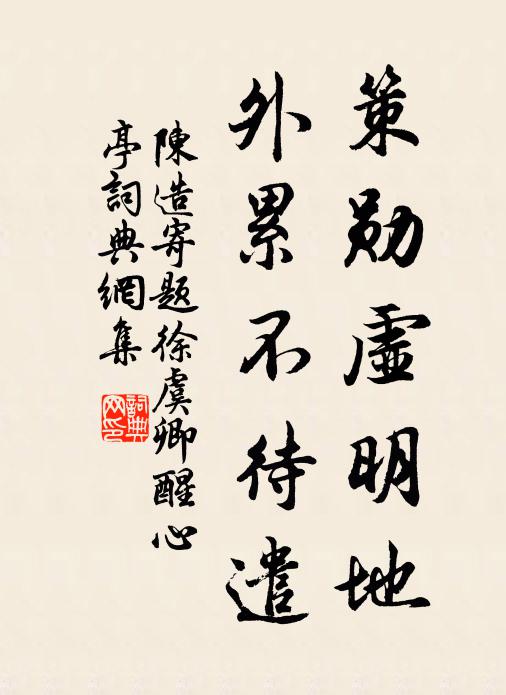 策勋虚明地
外累不待遣
陳造寄題徐虞卿醒心
亭詞典網集
詞典
网印